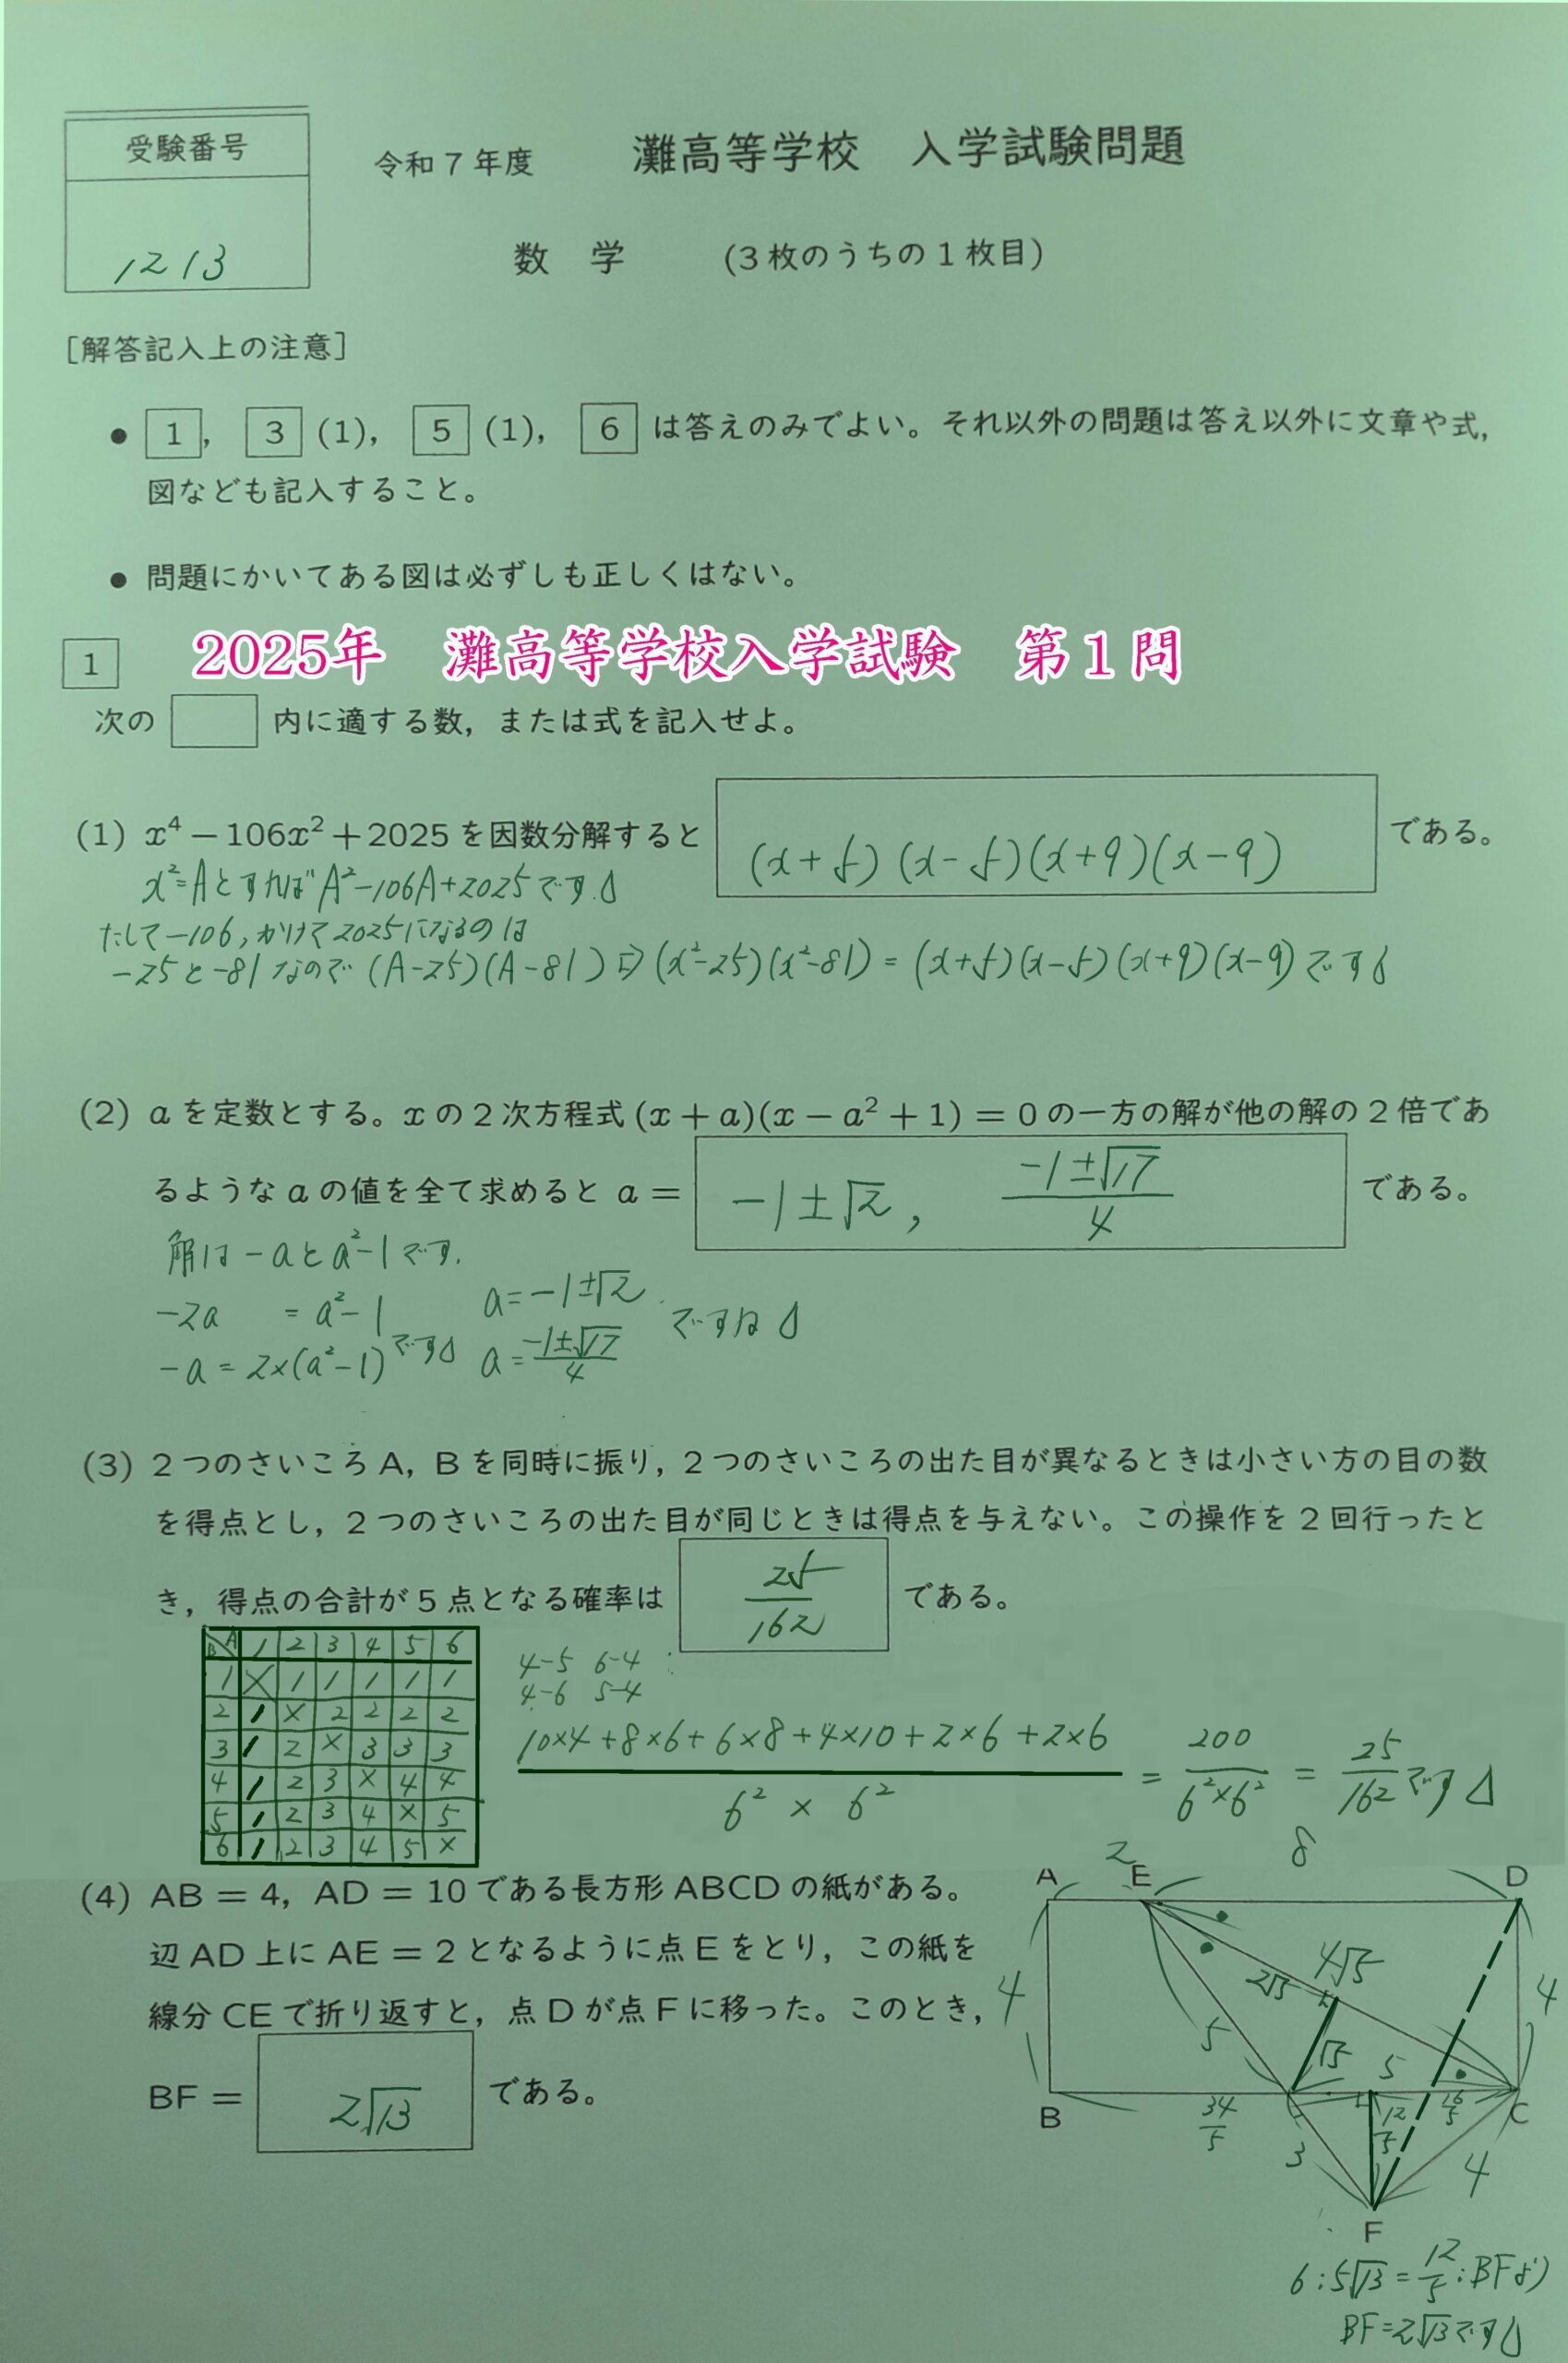 受験番号
1213
令和7年度 灘高等学校 入学試験問題
数 学 (3枚のうちの1枚目)
[解答記入上の注意]
● 1, 3 (1), 5 (1), 6 は答えのみでよい。それ以外の問題は答え以外に文章や式,
図なども記入すること。
● 問題にかいてある図は必ずしも正しくはない。
1 2025年 灘高等学校入学試験 第1問
次の 内に適する数, または式を記入せよ。
(1) x⁴ − 106x² + 2025 を因数分解すると (x+5)(x-5)(x+9)(x-9) である。
x²=Aとすれば A²-106A+2025です。
たして-106, かけて2025になるのは
-25と-81なので (A-25)(A-81) ⇨ (x²-25)(x²-81) = (x+5)(x-5)(x+9)(x-9)です
(2) a を定数とする。x の2次方程式 (x + a)(x − a² + 1) = 0 の一方の解が他の解の2倍であ
るような a の値を全て求めると a = -1±√2, (-1±√17)/4 である。
解は -aとa²-1です.
-2a = a²-1 a=-1±√2
-a=2×(a²-1)です a=(-1±√17)/4 ですね
(3) 2つのさいころA, Bを同時に振り, 2つのさいころの出た目が異なるときは小さい方の目の数
を得点とし, 2つのさいころの出た目が同じときは得点を与えない。この操作を2回行ったと
き, 得点の合計が5点となる確率は 25/162 である。
B A 1 2 3 4 5 6
1 × 1 1 1 1 1
2 1 × 2 2 2 2
3 1 2 × 3 3 3
4 1 2 3 × 4 4
5 1 2 3 4 × 5
6 1 2 3 4 5 ×
4-5 6-4
4-6 5-4
(10×4+8×6+6×8+4×10+2×6+2×6)/(6²×6²) = 200/(6²×6²) = 25/162です
(4) AB = 4, AD = 10 である長方形 ABCD の紙がある。
辺 AD 上に AE = 2 となるように点 E をとり, この紙を
線分 CE で折り返すと, 点 D が点 F に移った。このとき,
BF = 2√13 である。
2 8
A E D
4√5
2√5
4 4
5 √5 5
B 34/5 12/5 16/5 C
3 4
F
6:5√13=12/5:BFより
BF=2√13です